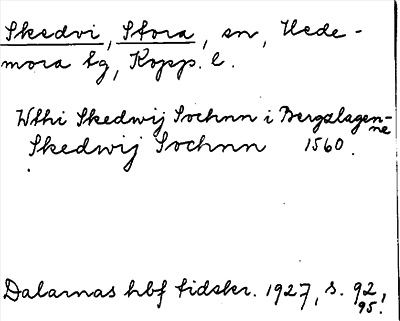 Skedvi, Stora, sn, Hede-
mora tg, Kopp. l.
Wthi Skedwij Sochnn i Bergzlagenn-
ne
Skedwij Sochnn 1560.
Dalarnas hbf tidskr. 1927, s. 92,
95.